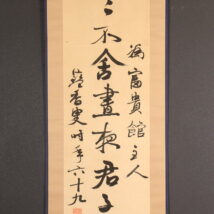 為富貴館主人
不舍晝夜君子
蘓香叟時年六十九